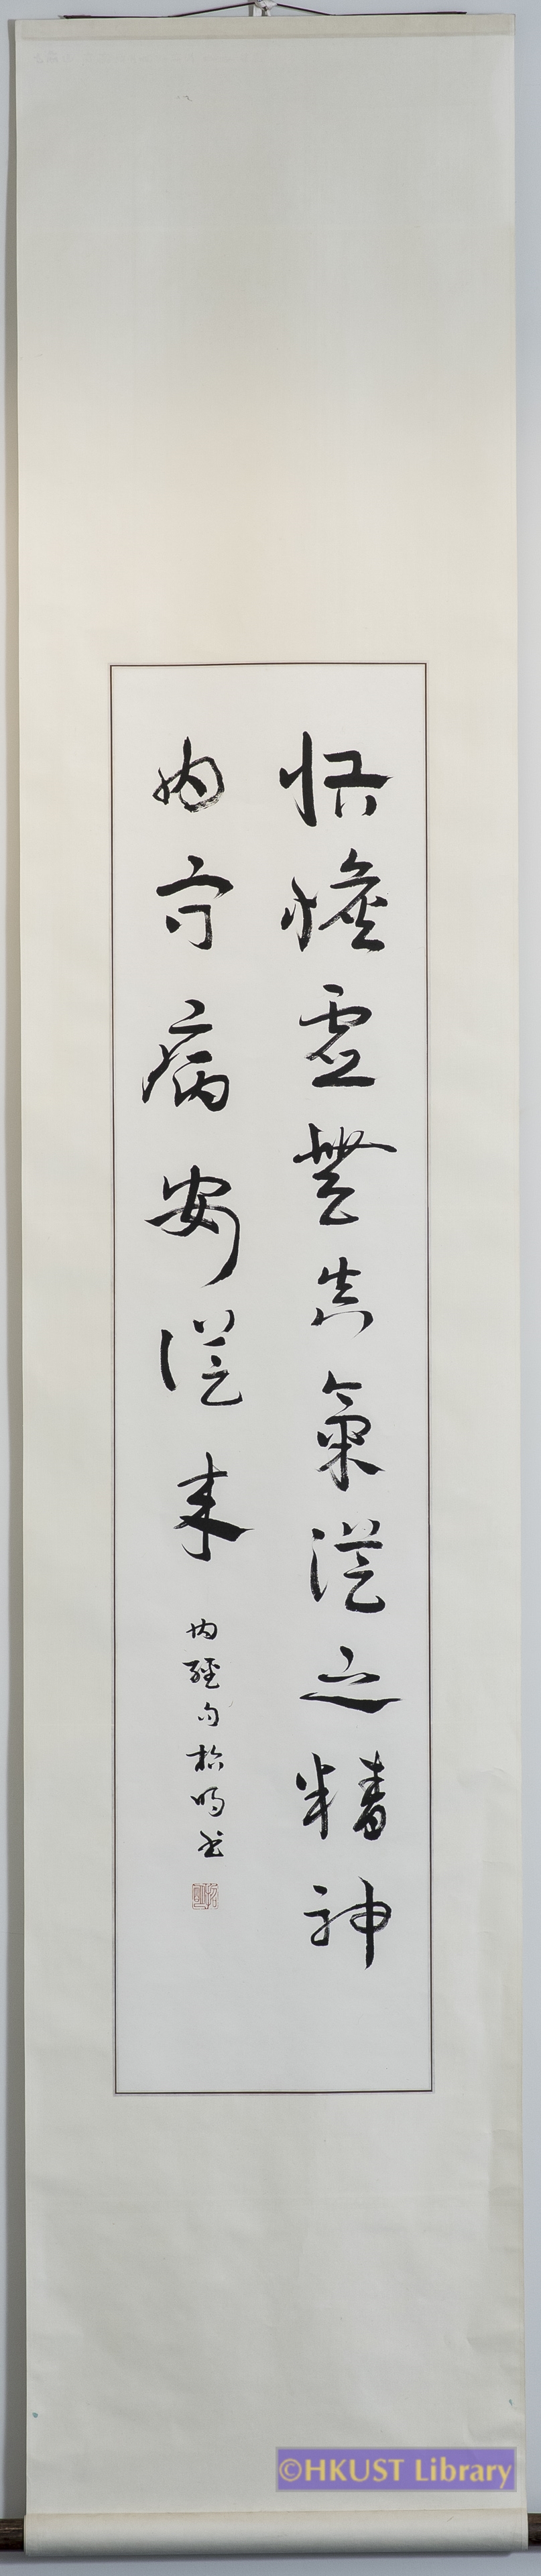 恬憺虛無真氣從之精神
内守病安從来
内經句 松明书
©HKUST Library